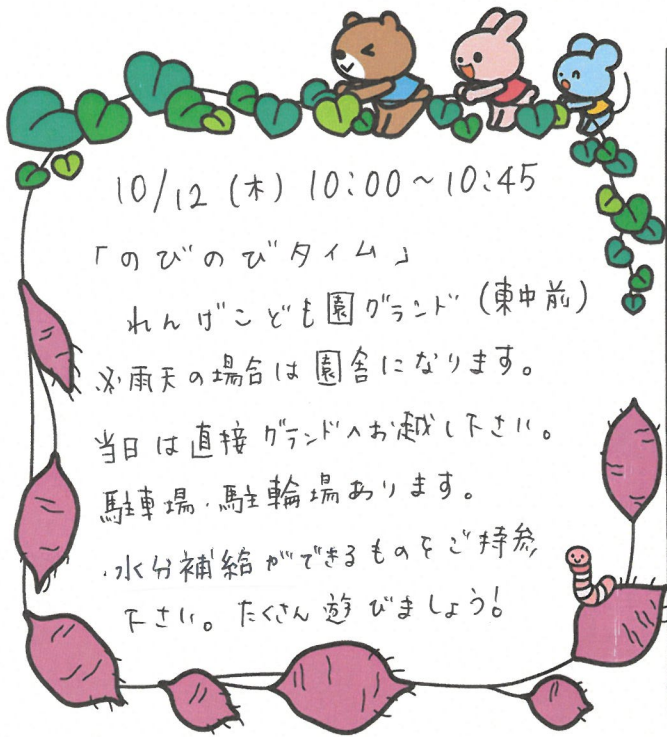 10/12 (木) 10:00～10:45
「のびのびタイム」
れんげこども園グランド (東中前)
※雨天の場合は園舎になります。
当日は直接グランドへお越し下さい。
駐車場・駐輪場あります。
・水分補給ができるものをご持参
下さい。たくさん遊びましょう!